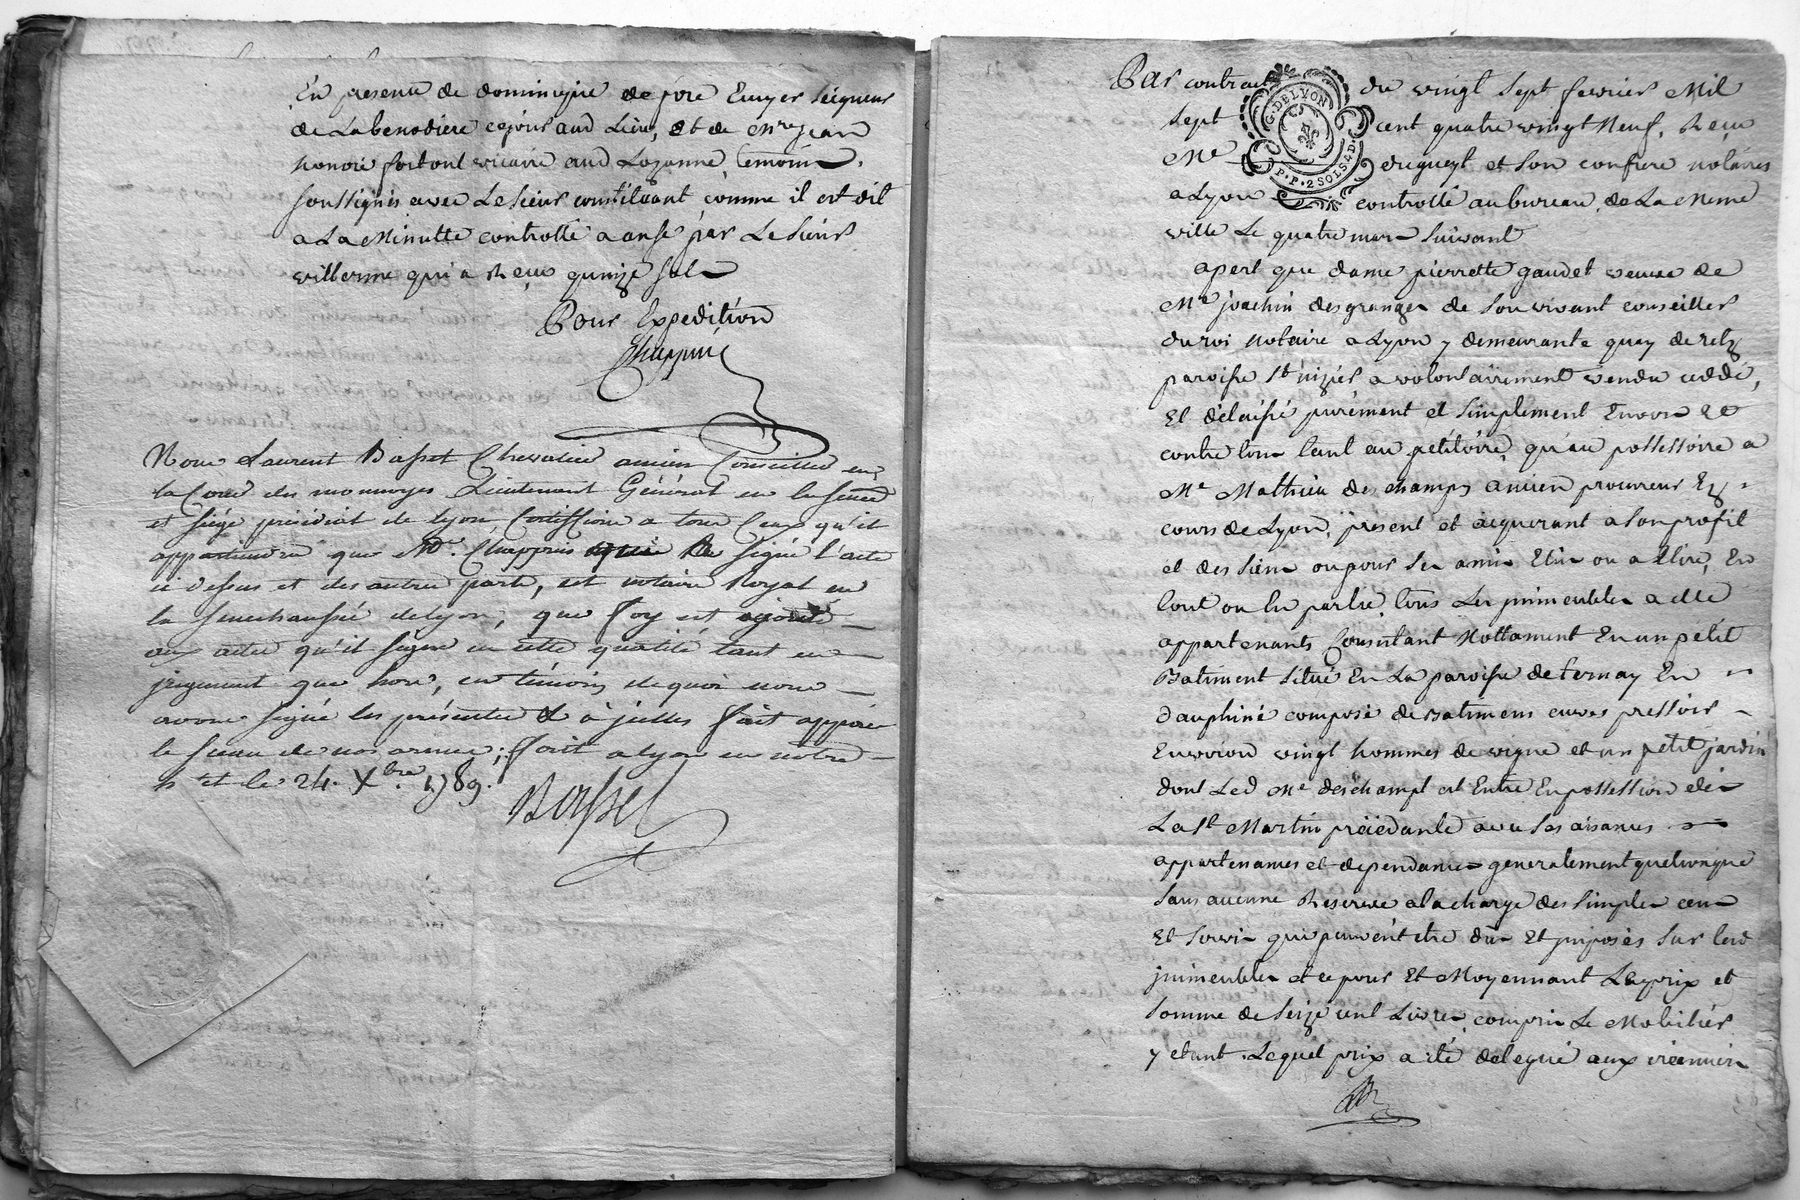 En presence de dominique de Jore Ecuyer seigneur
de Labenodiere cejour aud Lieu, et de mre jean
honoré fortoul vicaire aud Lozanne temoins
soussignés avec Le sieur constituant comme il est dit
a La Minutte controllé a anse par Le sieur
villerme qui a Reçu quinze sols
Pour Expedition
Chappuis
Nous Laurent Basset Chevalier ancien Conseiller en
la Cour des monnoyes Lieutenant Général en la Séneé
et siège présidial de lyon, Certiffions a tous Ceux qu'il
appartiendra que Me. Chappuis qui a signé l'acte
ci dessus et des autres parts, est notaire Royal en
la senechaussée de lyon, que foy est ajoutée
aux actes qu'il signe en cette qualité tant en
jugement que hors, en témoin de quoi nous
avons signé les présentes & à jcelles fait apposer
le sceau de nos armes; fait a lyon en nôtre
h tel le 24. Xbre. 1789.
Basset
Par contract du vingt sept fevrier Mil
sept cent quatre vingt Neuf, Reçu
Me dugueyt et son confrere notaires
a Lyon controllé au bureau de La Meme
ville Le quatre mars suivant
G. DE LYON
P.P. 2 SOLS 4 D
apert que dame pierrette gaudet veuve de
Me joachin desgranges de son vivant conseiller
du roi Notaire a Lyon y demeurante quay de retz
paroisse St nizier a volontairement vendu ceddé,
Et délaissé purement et simplement Envers et
contre tous tant au pétitoire, qu'au possessoire a
Me Mathieu deschamps ancien procureur Ez
cours de Lyon, present et acquerant a son profit
et des siens ou pour ses amis Elus ou a Elire, En
tout ou En partie, tous Les jmmeubles a elle
appartenants Consistant Nottament En un petit
Batiment situé En La paroisse de ternay En
dauphiné composé de Batimens cuves pressoir
Environ vingt hommes de vigne et un petit jardin
dont Led Me deschamps est Entré En possession dès
La St Martin précédante avec ses aisances
appartenances et dependances generalement quelconque
sans aucune Reserve a la charge des simples cens
Et servis qui peuvent etre dus Et jmposés sur lesd
jmmeubles et ce pour Et Moyennant Le prix et
somme de seize cent Livres compris Le Mobilier
y etant. Lequel prix a été delegué aux creanciers